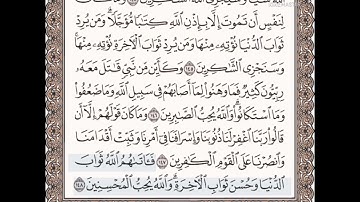 لِنَفْسٍ أَن تَمُوتَ إِلَّا بِإِذْنِ ٱللَّهِ كِتَٰبًا مُّؤَجَّلًا ۗ وَمَن يُرِدْ
ثَوَابَ ٱلدُّنْيَا نُؤْتِهِۦ مِنْهَا وَمَن يُرِدْ ثَوَابَ ٱلْءَاخِرَةِ نُؤْتِهِۦ مِنْهَا ۚ
وَسَنَجْزِى ٱلشَّٰكِرِينَ ١٤٥ وَكَأَيِّن مِّن نَّبِىٍّ قَٰتَلَ مَعَهُۥ
رِبِّيُّونَ كَثِيرٌ فَمَا وَهَنُوا۟ لِمَآ أَصَابَهُمْ فِى سَبِيلِ ٱللَّهِ وَمَا ضَعُفُوا۟
وَمَا ٱسْتَكَانُوا۟ ۗ وَٱللَّهُ يُحِبُّ ٱلصَّٰبِرِينَ ١٤٦ وَمَا كَانَ قَوْلَهُمْ إِلَّآ أَن
قَالُوا۟ رَبَّنَا ٱغْفِرْ لَنَا ذُنُوبَنَا وَإِسْرَافَنَا فِىٓ أَمْرِنَا وَثَبِّتْ أَقْدَامَنَا
وَٱنصُرْنَا عَلَى ٱلْقَوْمِ ٱلْكَٰفِرِينَ ١٤٧ فَـَٔاتَىٰهُمُ ٱللَّهُ ثَوَابَ
ٱلدُّنْيَا وَحُسْنَ ثَوَابِ ٱلْءَاخِرَةِ ۗ وَٱللَّهُ يُحِبُّ ٱلْمُحْسِنِينَ ١٤٨